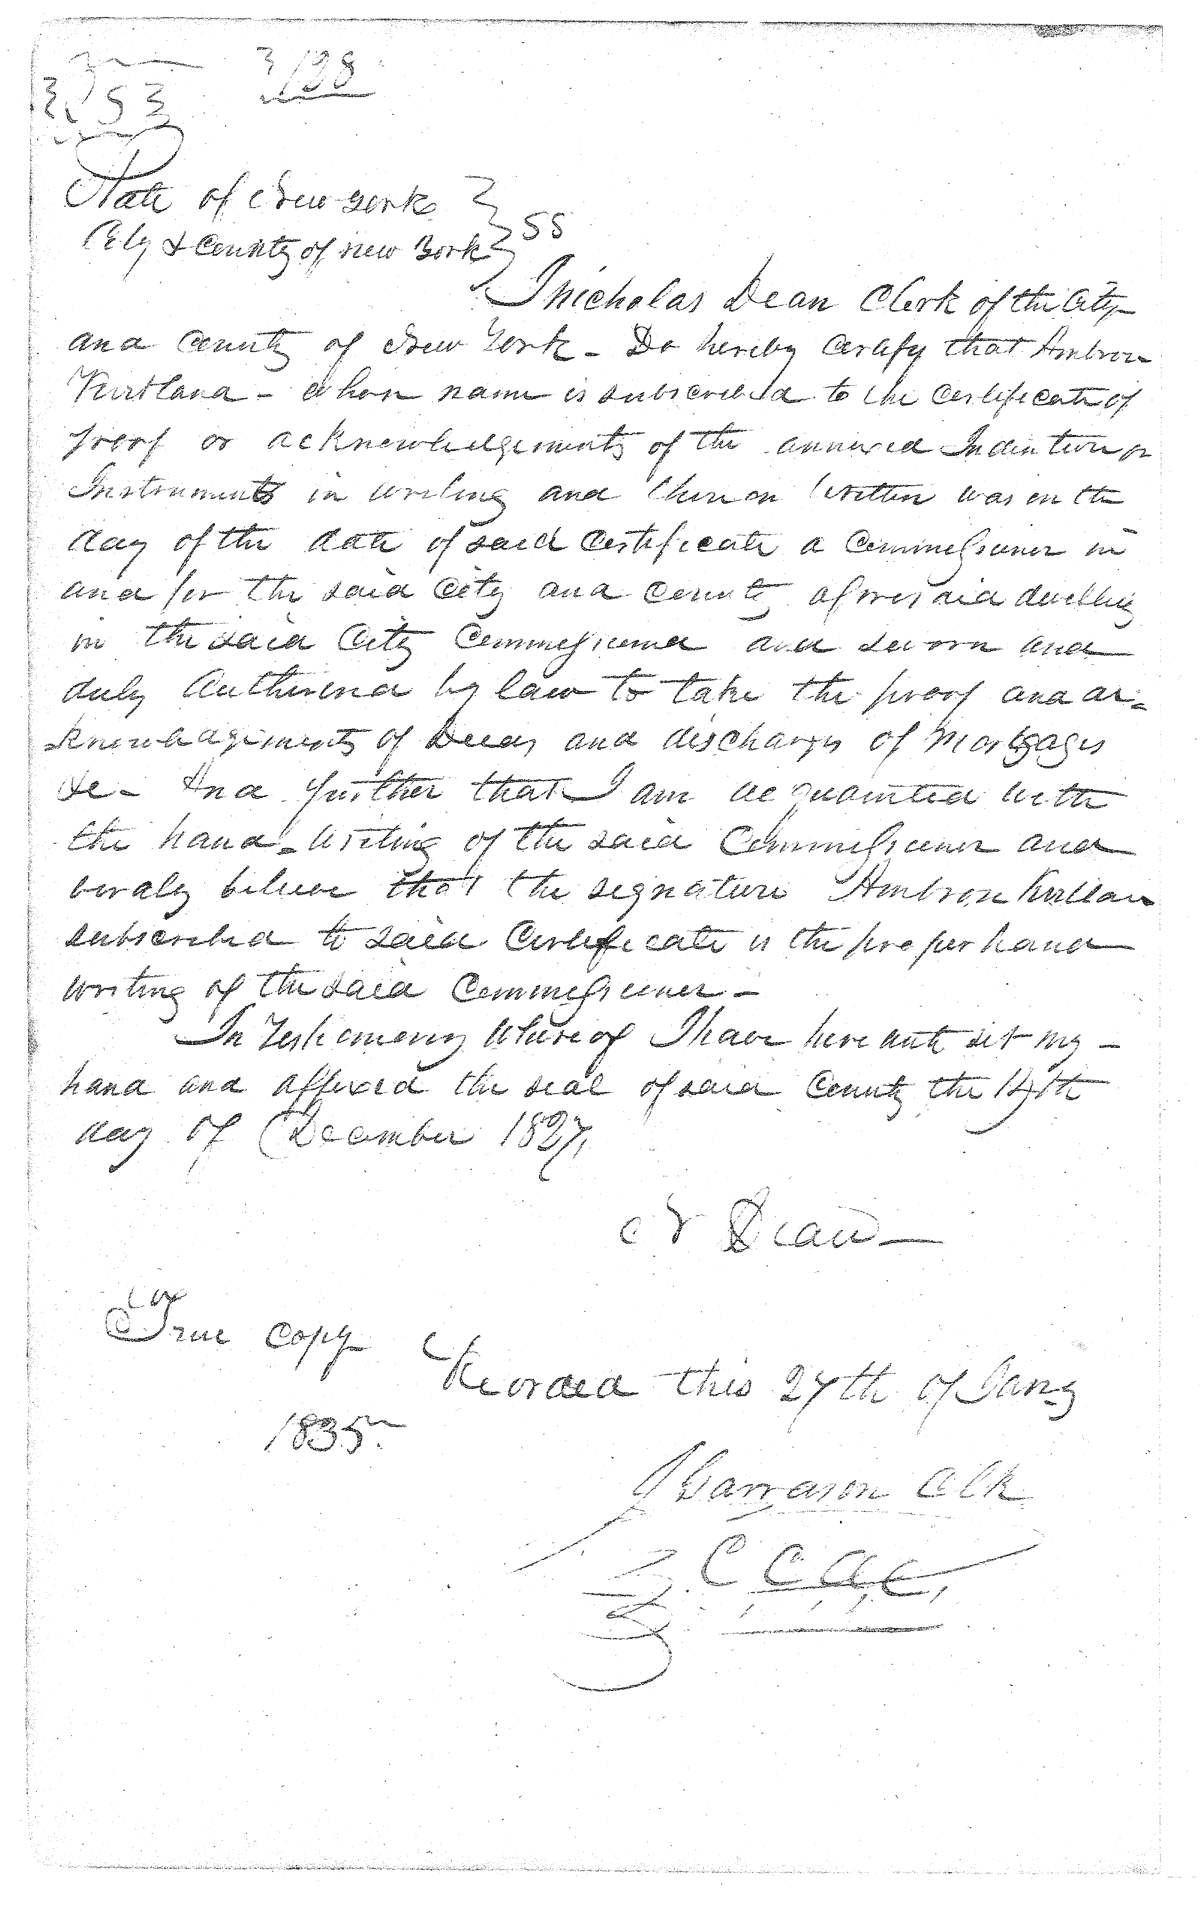 128
53
State of New York
City & County of New York } SS
I Nicholas Dean Clerk of the City
and County of New York - Do hereby Certify that Ambrose
Kirtland - whose name is subscribed to the Certificate of
proof or acknowledgements of the annexed Indenture or
Instruments in writing and thereon written was on the
day of the date of said Certificate a Commissioner in
and for the said City and County aforesaid dwelling
in the said City Commissioned and sworn and
duly Authorised by law to take the proof and ac=
=knowledgements of Deeds and discharges of Mortgages
&c - And further that I am acquainted with
the hand-writing of the said Commissioner and
veraly believe that the signature Ambrose Kirtland
subscribed to said Certificate is the proper hand
writing of the said Commissioner -
In Testimony Whereof I have here unto set my -
hand and affixed the seal of said County the 14th
day of December 1827,
N Dean -
True Copy
Recorded this 27th of Jany
1835
J Garrason Clk
C C A C